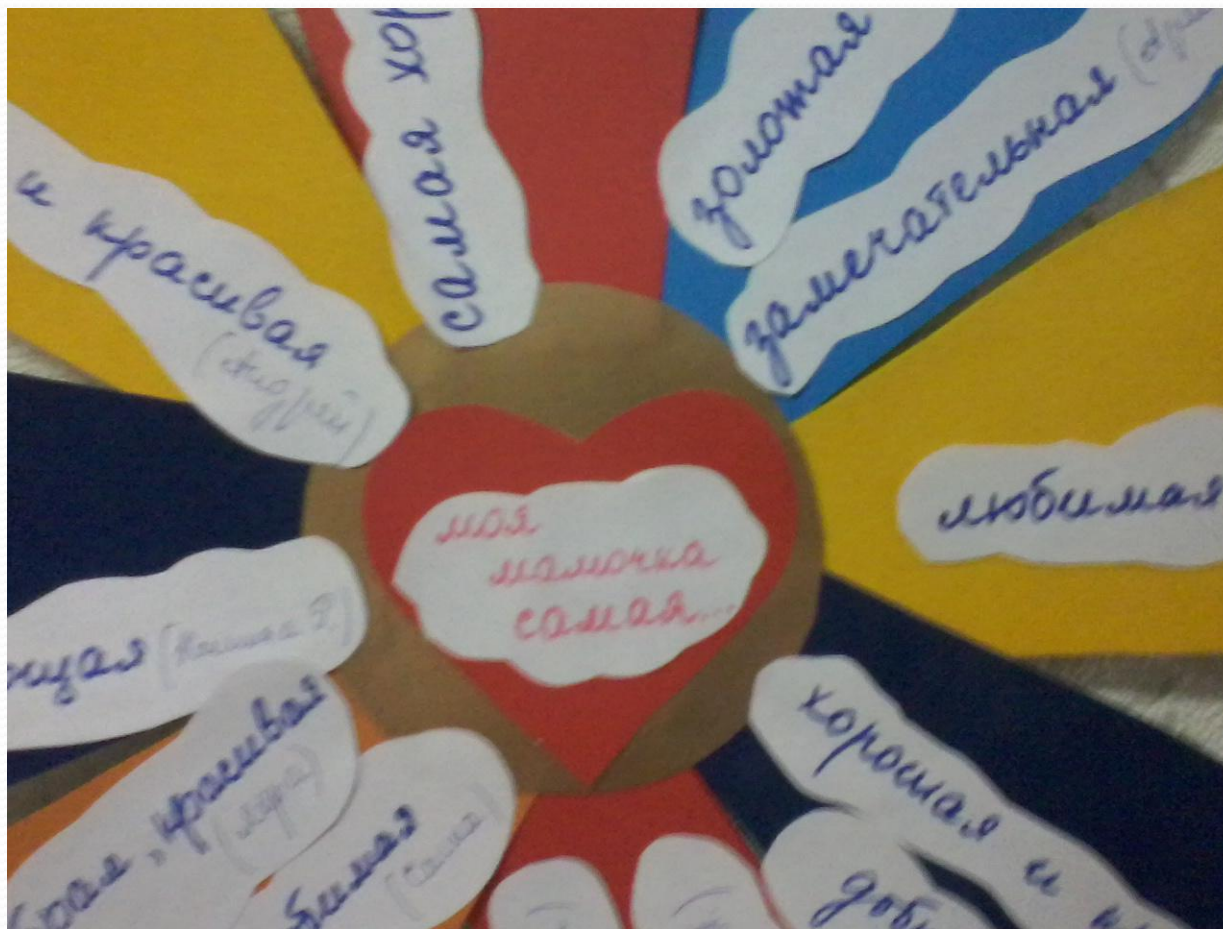 моя
мамочка
самая...
самая хор
золотая
замечательная
любимая
хорошая и
доб
бимая
(Саша)
брая, красивая
(Лера)
ющая
и красивая
(Андрей)